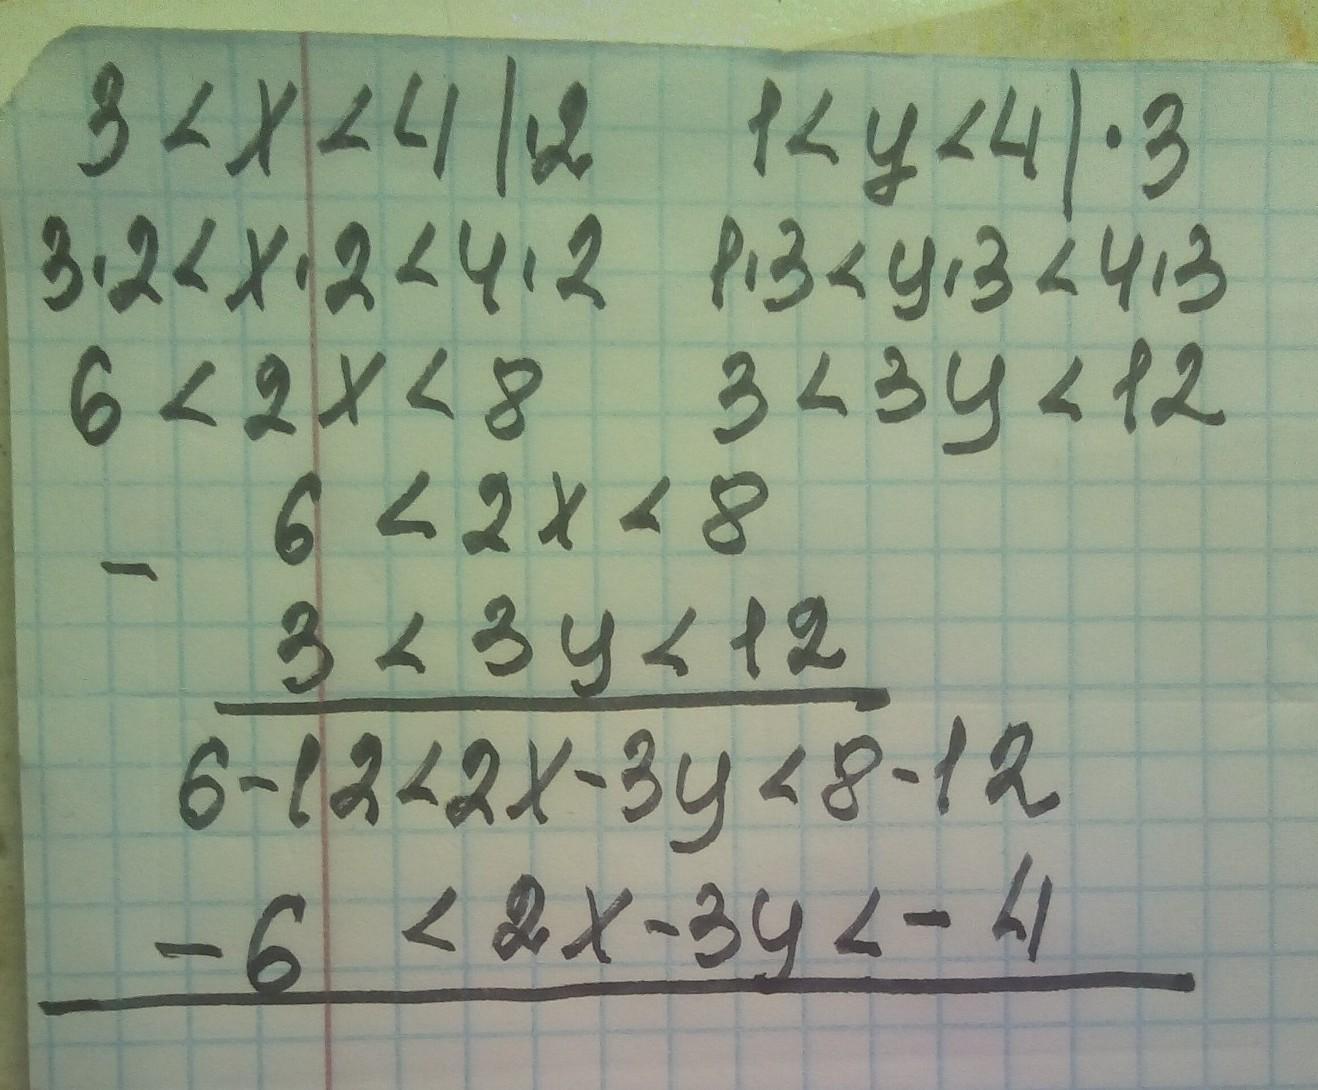 3 < x < 4 | ·2 1 < y < 4 | · 3
3·2 < x·2 < 4·2 1·3 < y·3 < 4·3
6 < 2x < 8 3 < 3y < 12
6 < 2x < 8
-
3 < 3y < 12
6-12 < 2x-3y < 8-12
-6 < 2x-3y < -4